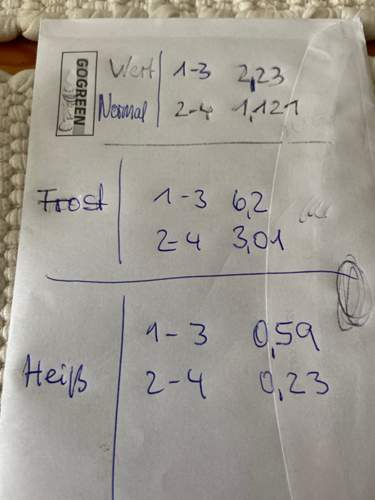 GOGREEN
Wert 1-3 2,23
Normal 2-4 1,121
Frost 1-3 6,2
2-4 3,01
1-3 0,59
Heiß 2-4 0,23